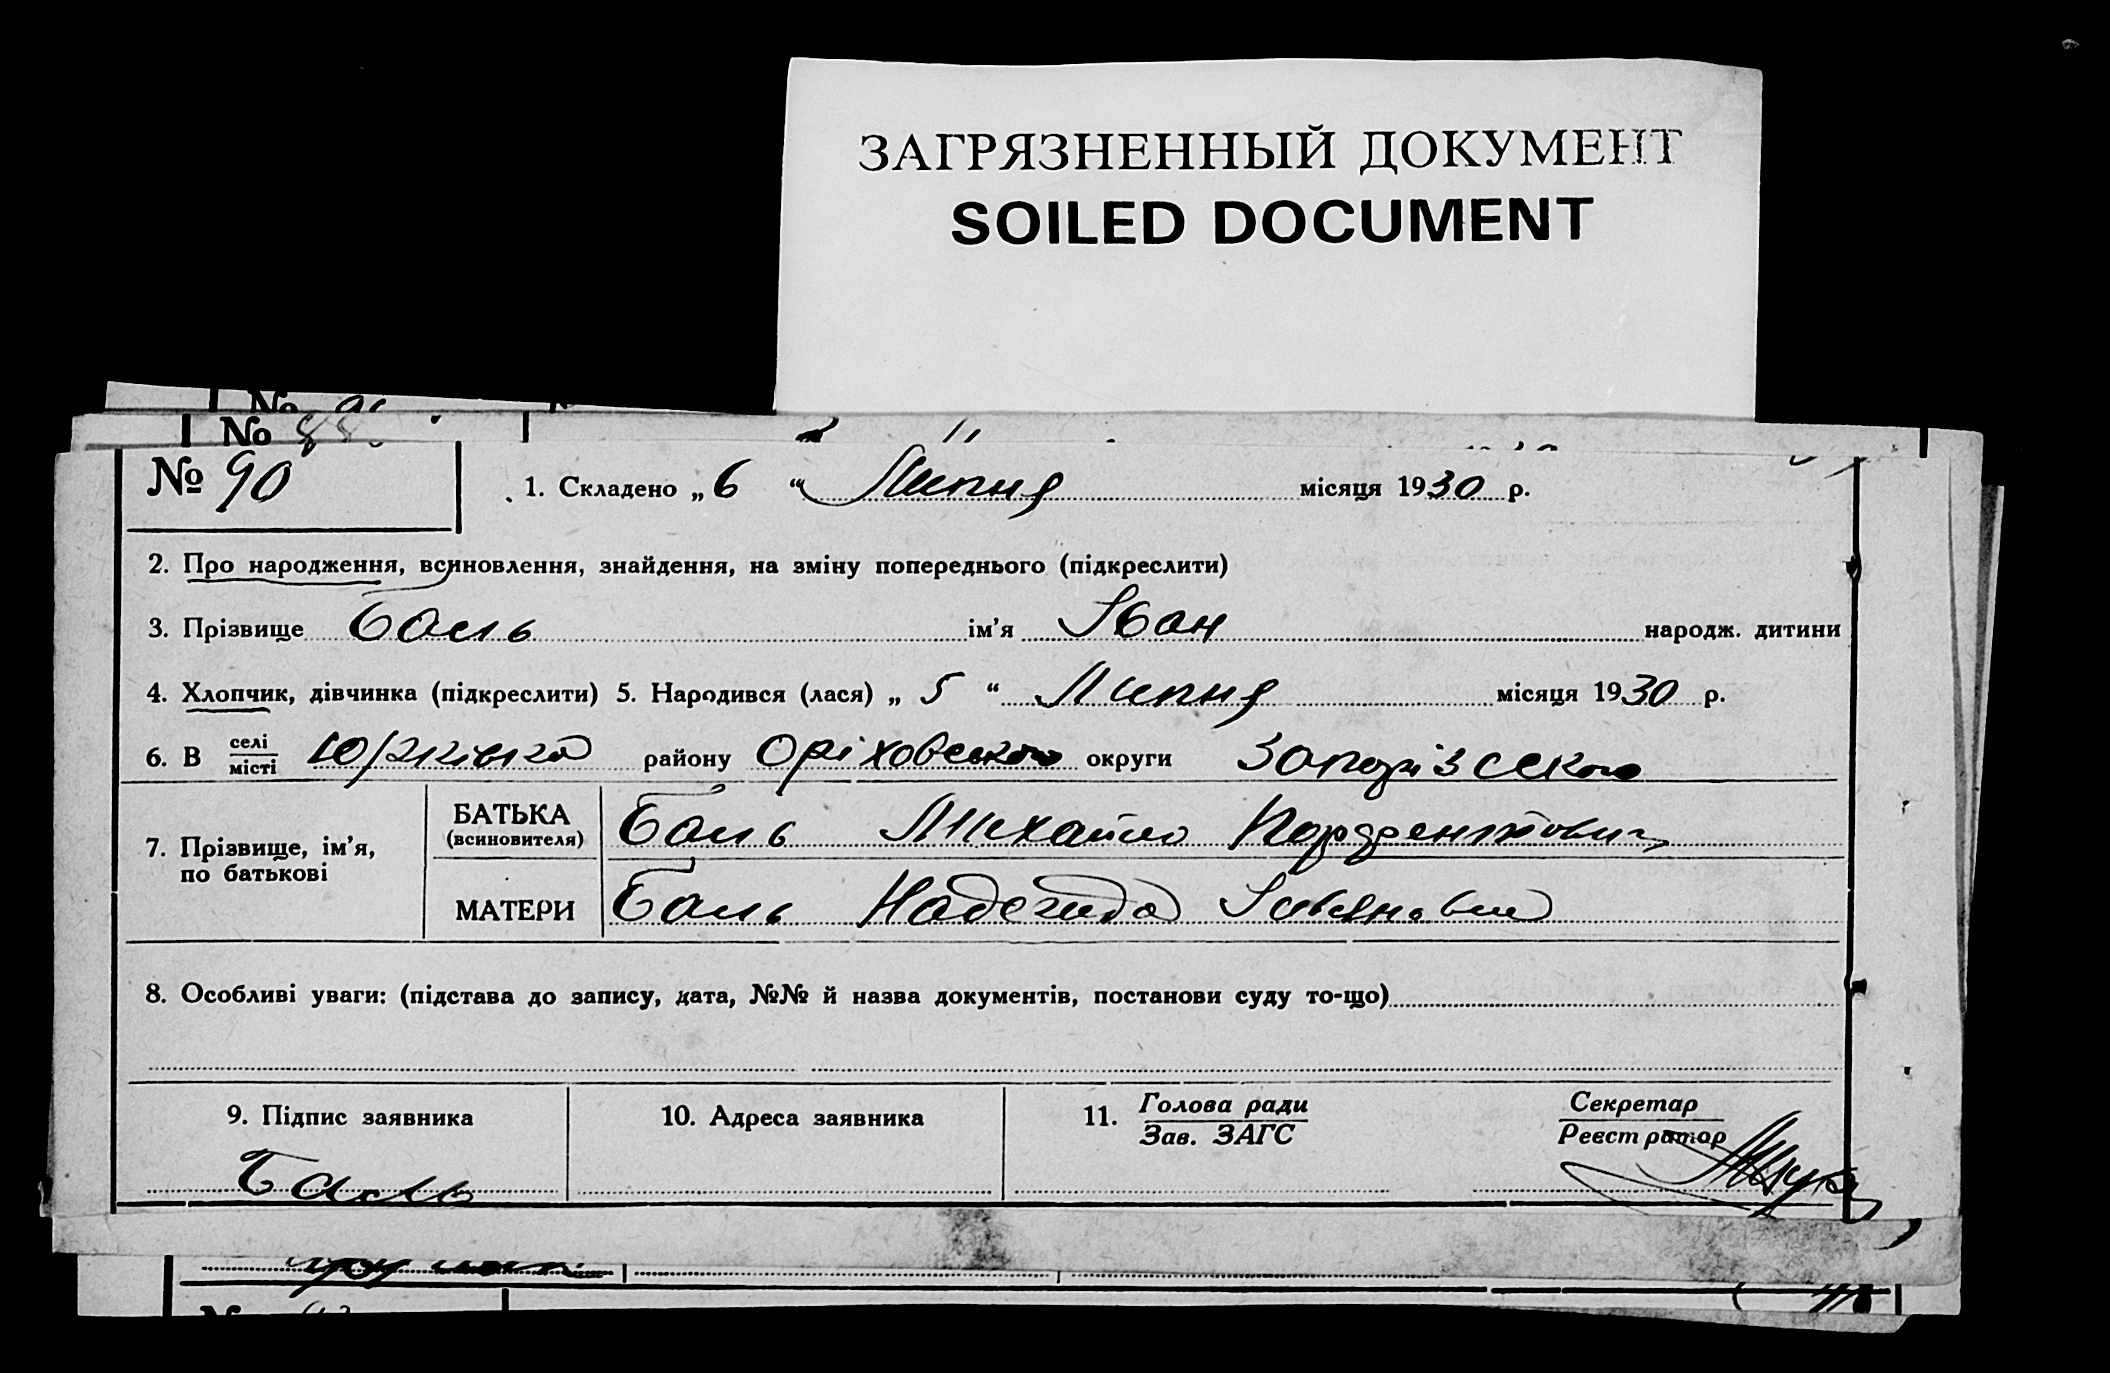 ЗАГРЯЗНЕННЫЙ ДОКУМЕНТ
SOILED DOCUMENT
№
№ 88
№ 90
1. Складено „ 6 “ Липня місяця 1930 р.
2. Про народження, всиновлення, знайдення, на зміну попереднього (підкреслити)
3. Прізвище Баль ім’я Іван народж. дитини
4. Хлопчик, дівчинка (підкреслити) 5. Народився (лася) „ 5 “ Липня місяця 1930 р.
6. В селі місті Юрківка району Оріховського округи Запорізського
7. Прізвище, ім’я, по батькові
БАТЬКА (всиновителя) Баль Михайло
МАТЕРИ Баль Надежда
8. Особливі уваги: (підстава до запису, дата, №№ й назва документів, постанови суду то-що)
9. Підпис заявника
10. Адреса заявника
11. Голова ради Зав. ЗАГС
Секретар Реєстратор
Баль